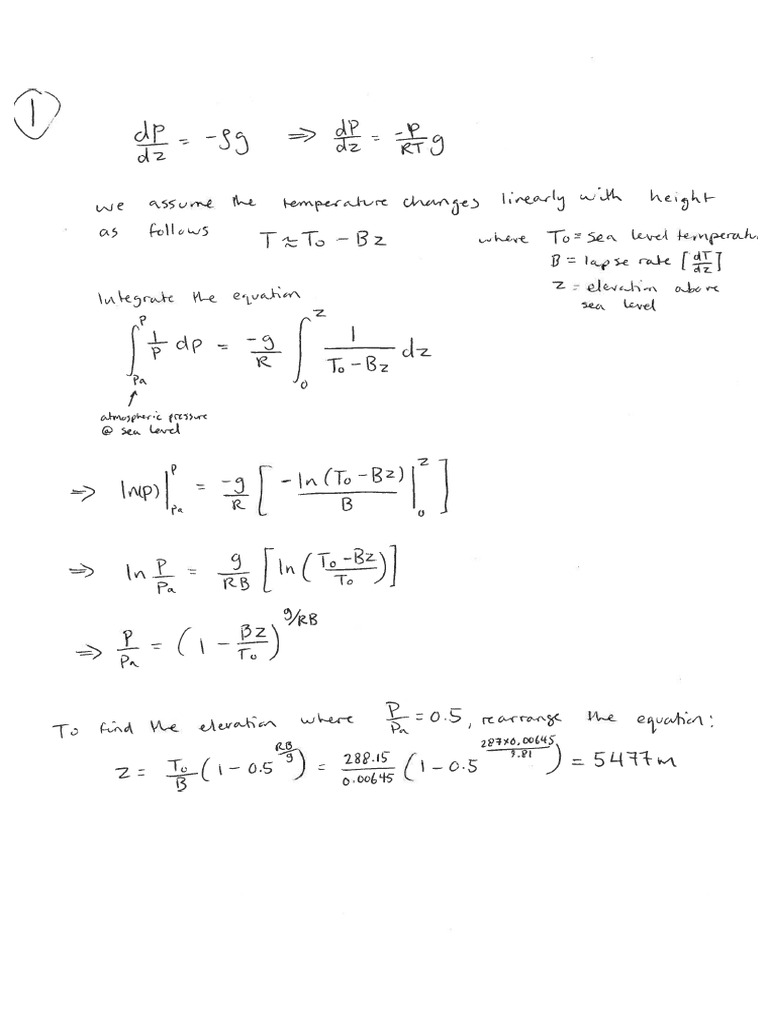 1
dP/dz = -ρg ⇒ dP/dz = -P/RT g
we assume the temperature changes linearly with height
as follows T ≈ To - Bz where To = sea level temperatu
B = lapse rate [dT/dz]
z = elevation above
sea level
Integrate the equation
∫_Pa^P 1/P dp = -g/R ∫_0^z 1/(To - Bz) dz
atmospheric pressure
@ sea level
⇒ ln(p)|_Pa^P = -g/R [ -ln(To - Bz)/B |_0^z ]
⇒ ln P/Pa = g/RB [ ln( (To - Bz)/To ) ]
⇒ P/Pa = (1 - Bz/To)^(g/RB)
To find the elevation where P/Pa = 0.5, rearrange the equation:
z = To/B (1 - 0.5^(RB/g)) = 288.15/0.00645 (1 - 0.5^(287×0.00645/9.81)) = 5477m